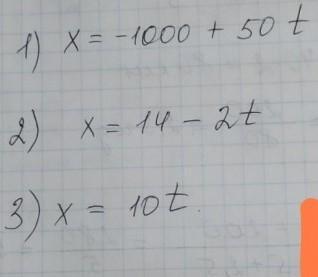 1) x = -1000 + 50 t
2) x = 14 - 2t
3) x = 10t.